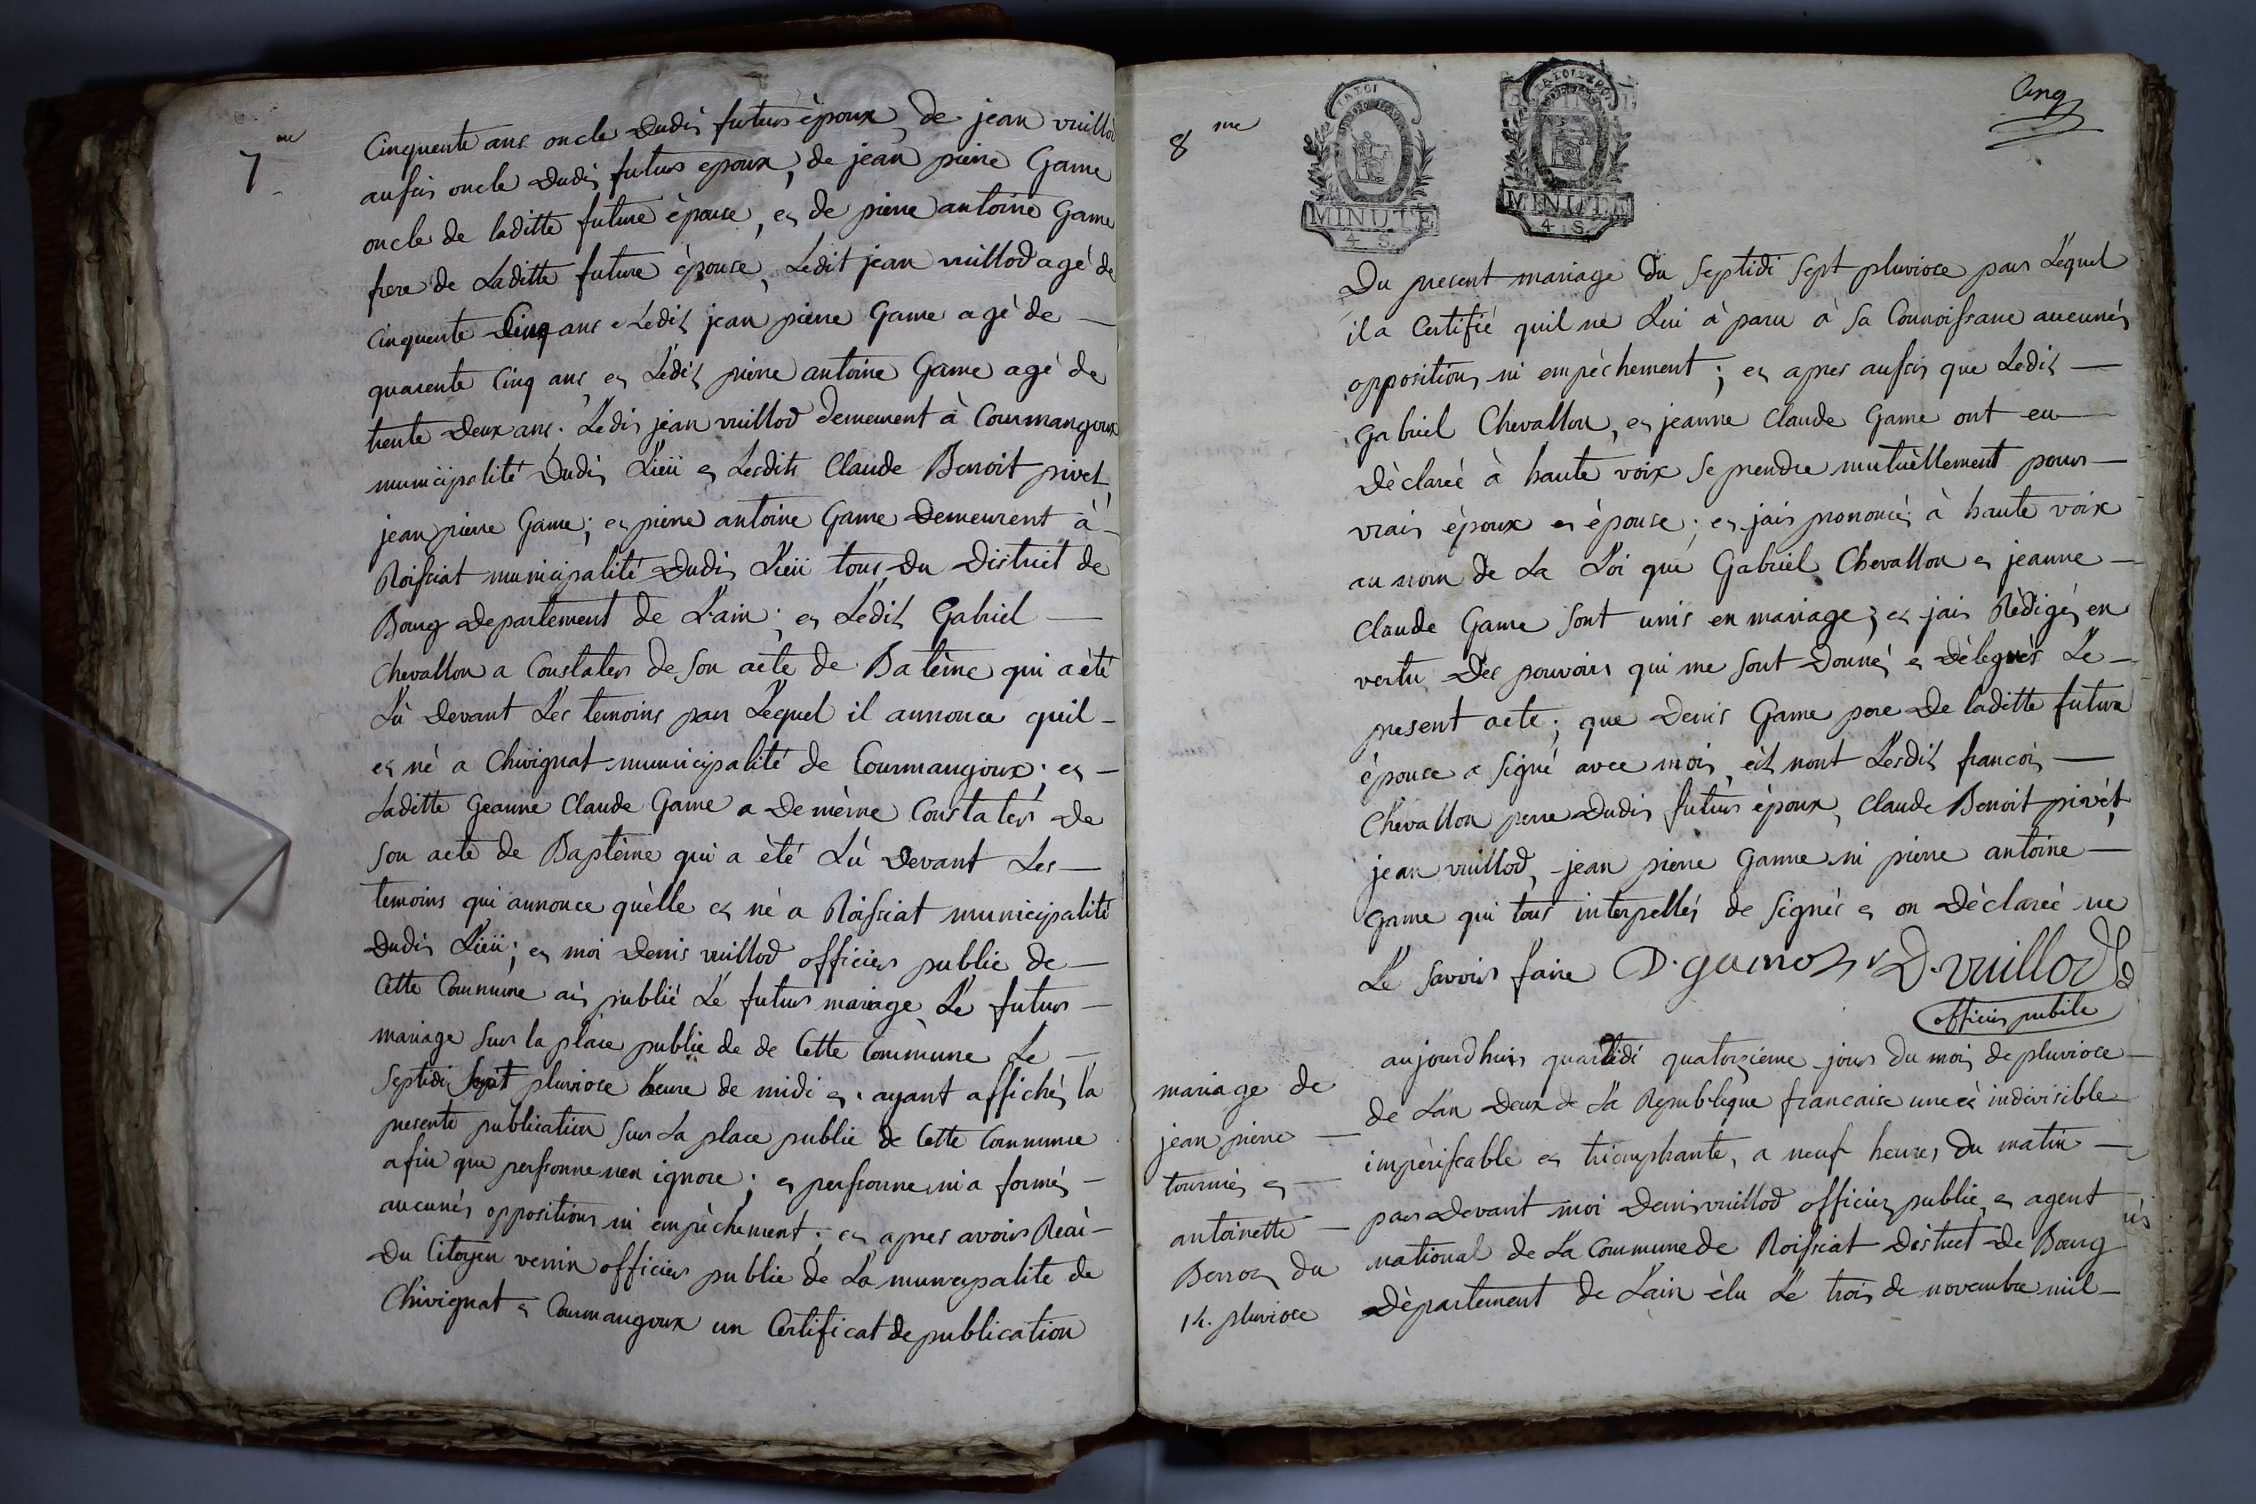 7me
Cinquente ans oncle Dudis futurs èpoux, de jean vuillod
aussis oncle Dudis futurs epoux, de jean pierre Game
oncle de laditte future èpouse, es de pierre antoine Game
frere de Laditte future èpouse, Ledit jean vuillod agé de
cinquente Cinq ans e Lèdis jean pierre Game agè de
quarente Cinq ans, es Lèdis pierre antoine Game agé de
trente Deux ans. Ledis jean vuillod demeurent à Courmangoux
municipalité Dudis Lieü es Lesdits Claude Benoit pivet,
jean pierre Game; es pierre antoine Game Demeurent à
Roissiat municipalité Dudis Lieü tous Du District de
Bourg Departement de L'ain; es Lèdis Gabriel
Chevallon a Constaters de son acte de Batème qui a été
Lù Devant Les temoins par Lequel il annonce quil
es nè a Chivignat municipalité de Courmangoux; es
Laditte Jeanne Claude Game a Demème Constaters de
son acte de Baptème qui a èté Lù Devant Les
temoins qui annonce quèlle es nè a Roissiat municipalité
Dudis Lieü; es moi Denis vuillod officiers public de
Cette Commune ais publié Le futurs mariage Le futurs
mariage sur la place public de de Cette Commune Le
septidi sept pluviose heure de midi es ayant affichés la
presente publication sur La place public de Cette Commune
afin que perssonne nen ignore; es perssonne ni a formés
aucunès oppositions ni empèchement; es apres avoirs Reài
Du Citoyen venin officiers public de La municipalite de
Chivignat es Courmangoux un Certificat de publication
8me
IA LOI
MINUTE
4 S.
MINUTE
4. S.
Cinq
Du present mariage du septidi sept pluviose pars Lèquel
il a Certifié quil ne Lui à paru à sa Connoissance aucunés
oppositions ni empèchement; es apres aussis que Ledis
Gabriel Chevallon, es jeanne Claude Game ont eu
Dèclareé à haute voix se prendre mutuèllement pours
vrais époux es épouse; es jais prononcés à haute voix
au nom de La Loi que Gabriel Chevallon es jeanne
Claude Game sont unis en mariage; es jais Rèdigés en
vertu Des pouvoirs qui me sont Donnés es Dèlegués Le
present acte; que Denis Game pere de laditte future
èpouse a signé avec mois, eit nont Lesdis francois
Chevallon pere Dudis futurs époux, Claude Benoit pivèt,
jean vuillod, jean pierre Game ni pierre antoine
Game qui tous interpellés de signés es on Dèclareé ne
Le savoirs faire D. game D. vuillod
officiers publie
mariage de
jean pierre
tourniés es
antoinette
Berroz du
14. pluviose
aujourdhuis quartidi quatorzieme jours du mois de pluviose
de Lan Deux de La Republique francaise une es indivisible
impèrissable es triomphante, a neuf heures du matin
pars devant moi Denis vuillod officiers public es agent
national de La Commune de Roissiat District de Bourg
Département de Lain élu Le trois de novembre mil